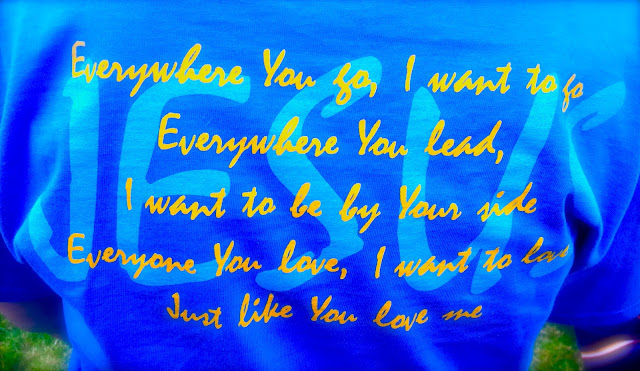 JESUS
Everywhere You go, I want to go
Everywhere You lead,
I want to be by Your side
Everyone You love, I want to love
Just like You love me